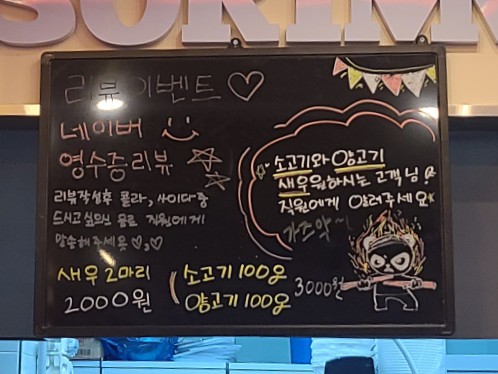 리뷰이벤트♡
네이버
영수증리뷰
리뷰작성후 콜라, 사이다 중
드시고 싶으신 음료 직원에게
말씀해주세요
새우 2마리
2000원
소고기와 양고기
새우원하시는 고객님!
직원에게 알려주세요
가즈아~!
소고기 100g
양고기 100g
3000원